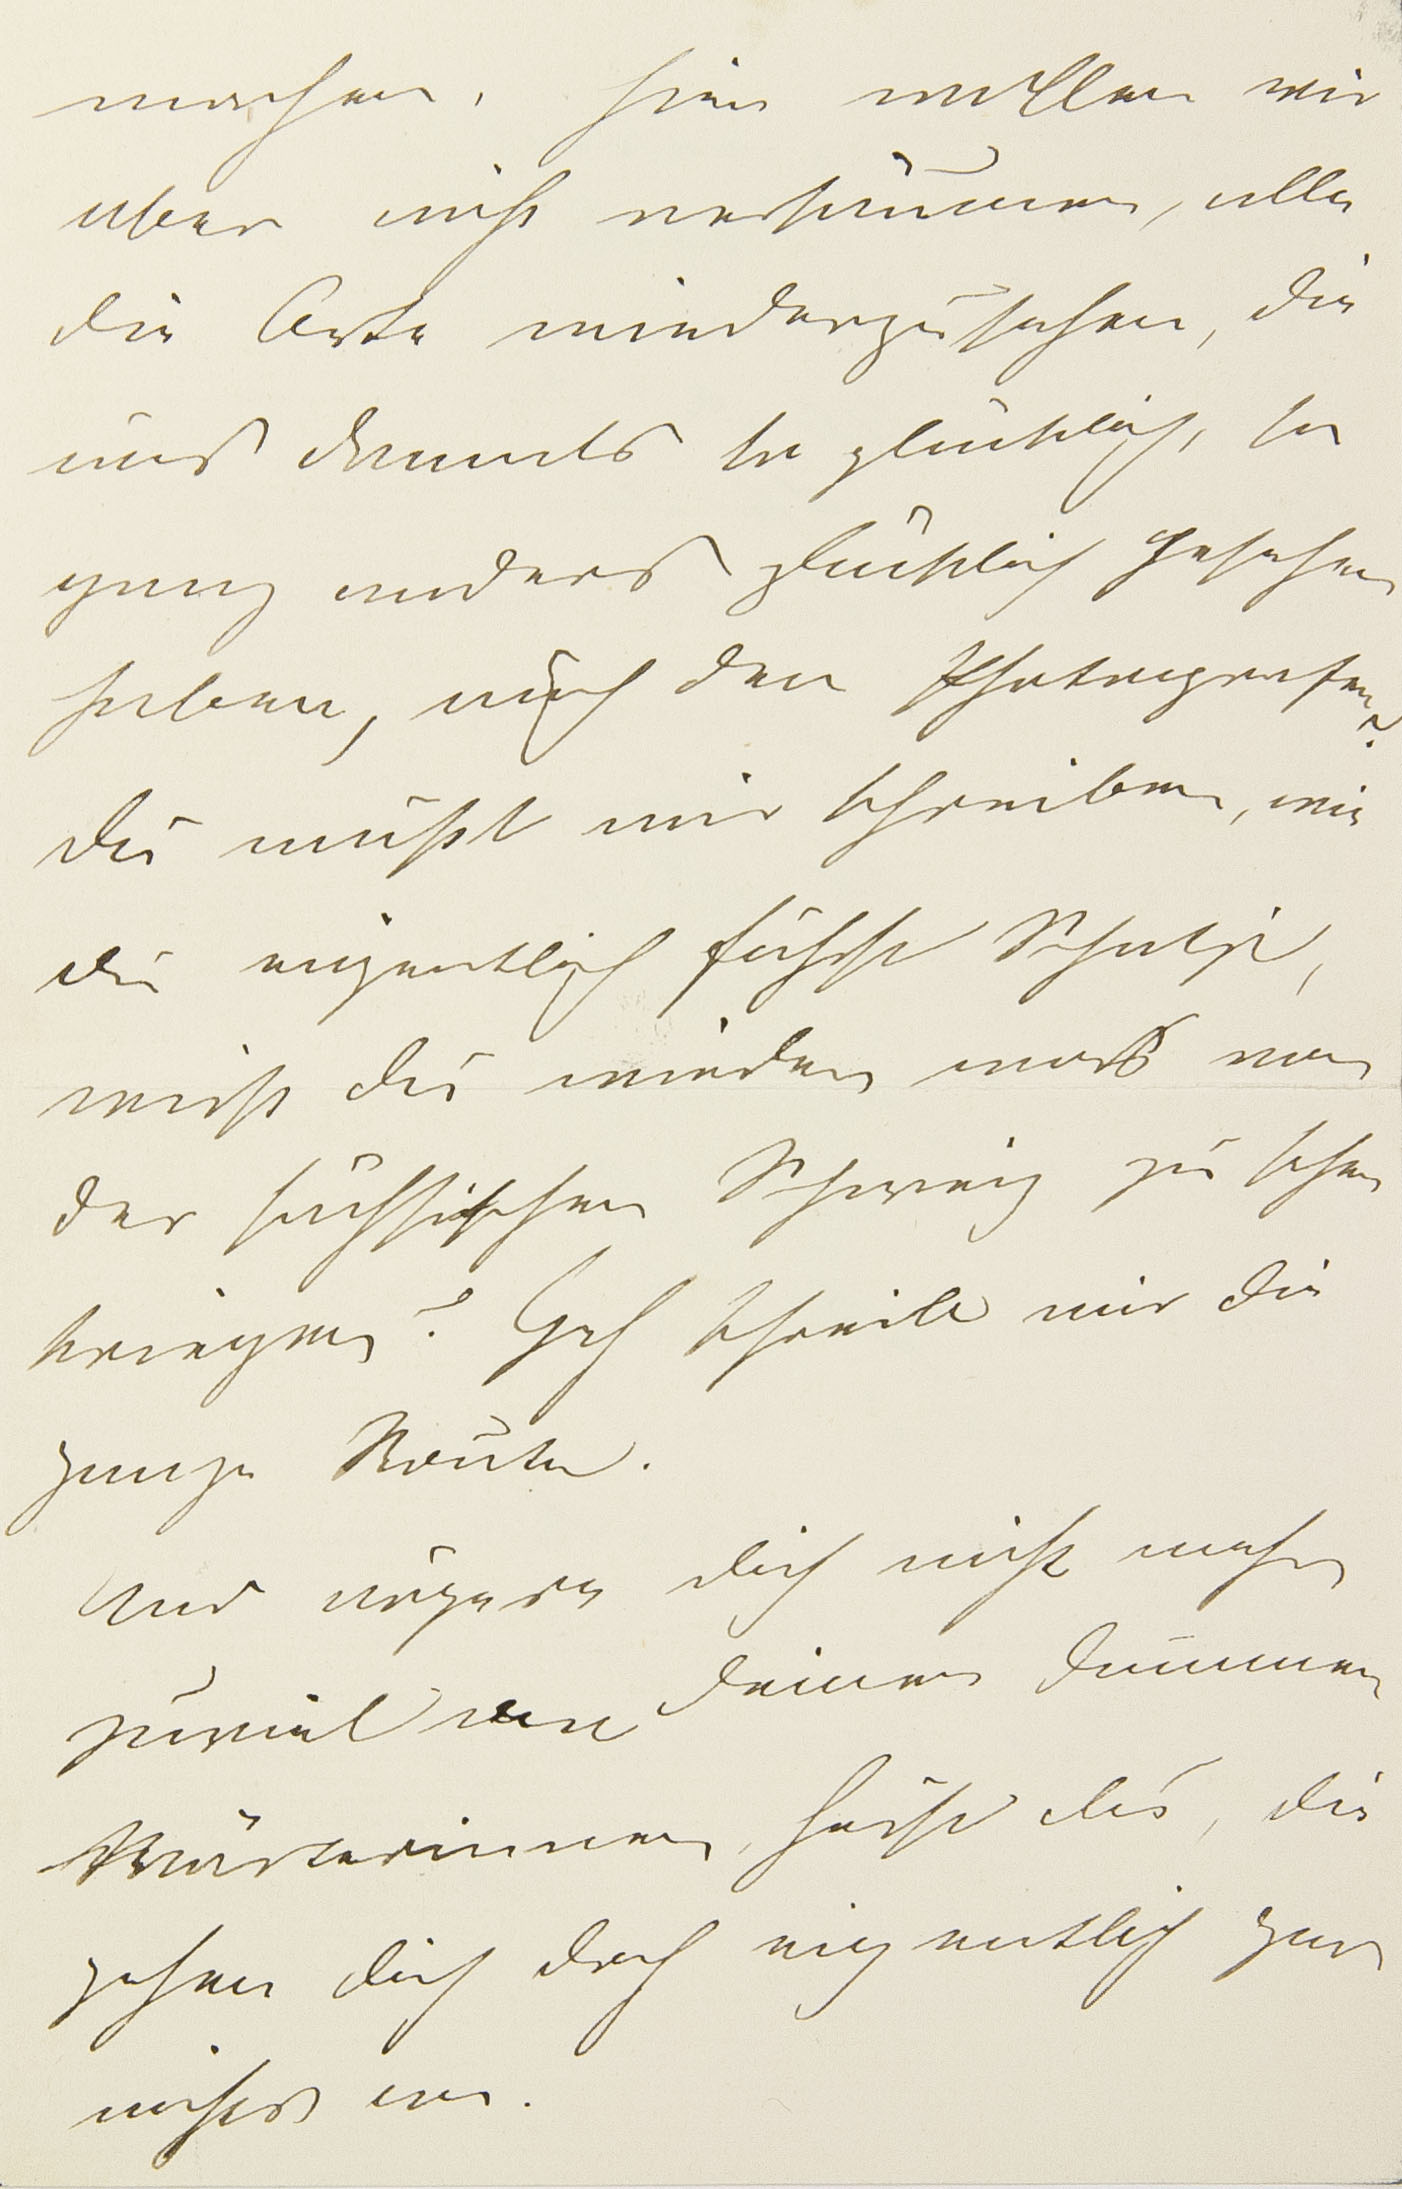 machen, hier wollen wir
aber nicht versäumen, alle
die Orte wiederzusehen, die
uns damals so glücklich, so
ganz anders glücklich gesehen
haben, auch den Photografen?
du mußt mir schreiben, wie
du eigentlich fährst Schatzi,
wirst du wieder was von
der sächsischen Schweiz zu sehen
kriegen? Geh schreibe mir die
ganze Route.
Und ärgere dich nicht mehr
zuviel an deinen dummen
Wärterinnen, hörst du, die
gehen dich doch eigentlich gar
nichts an.